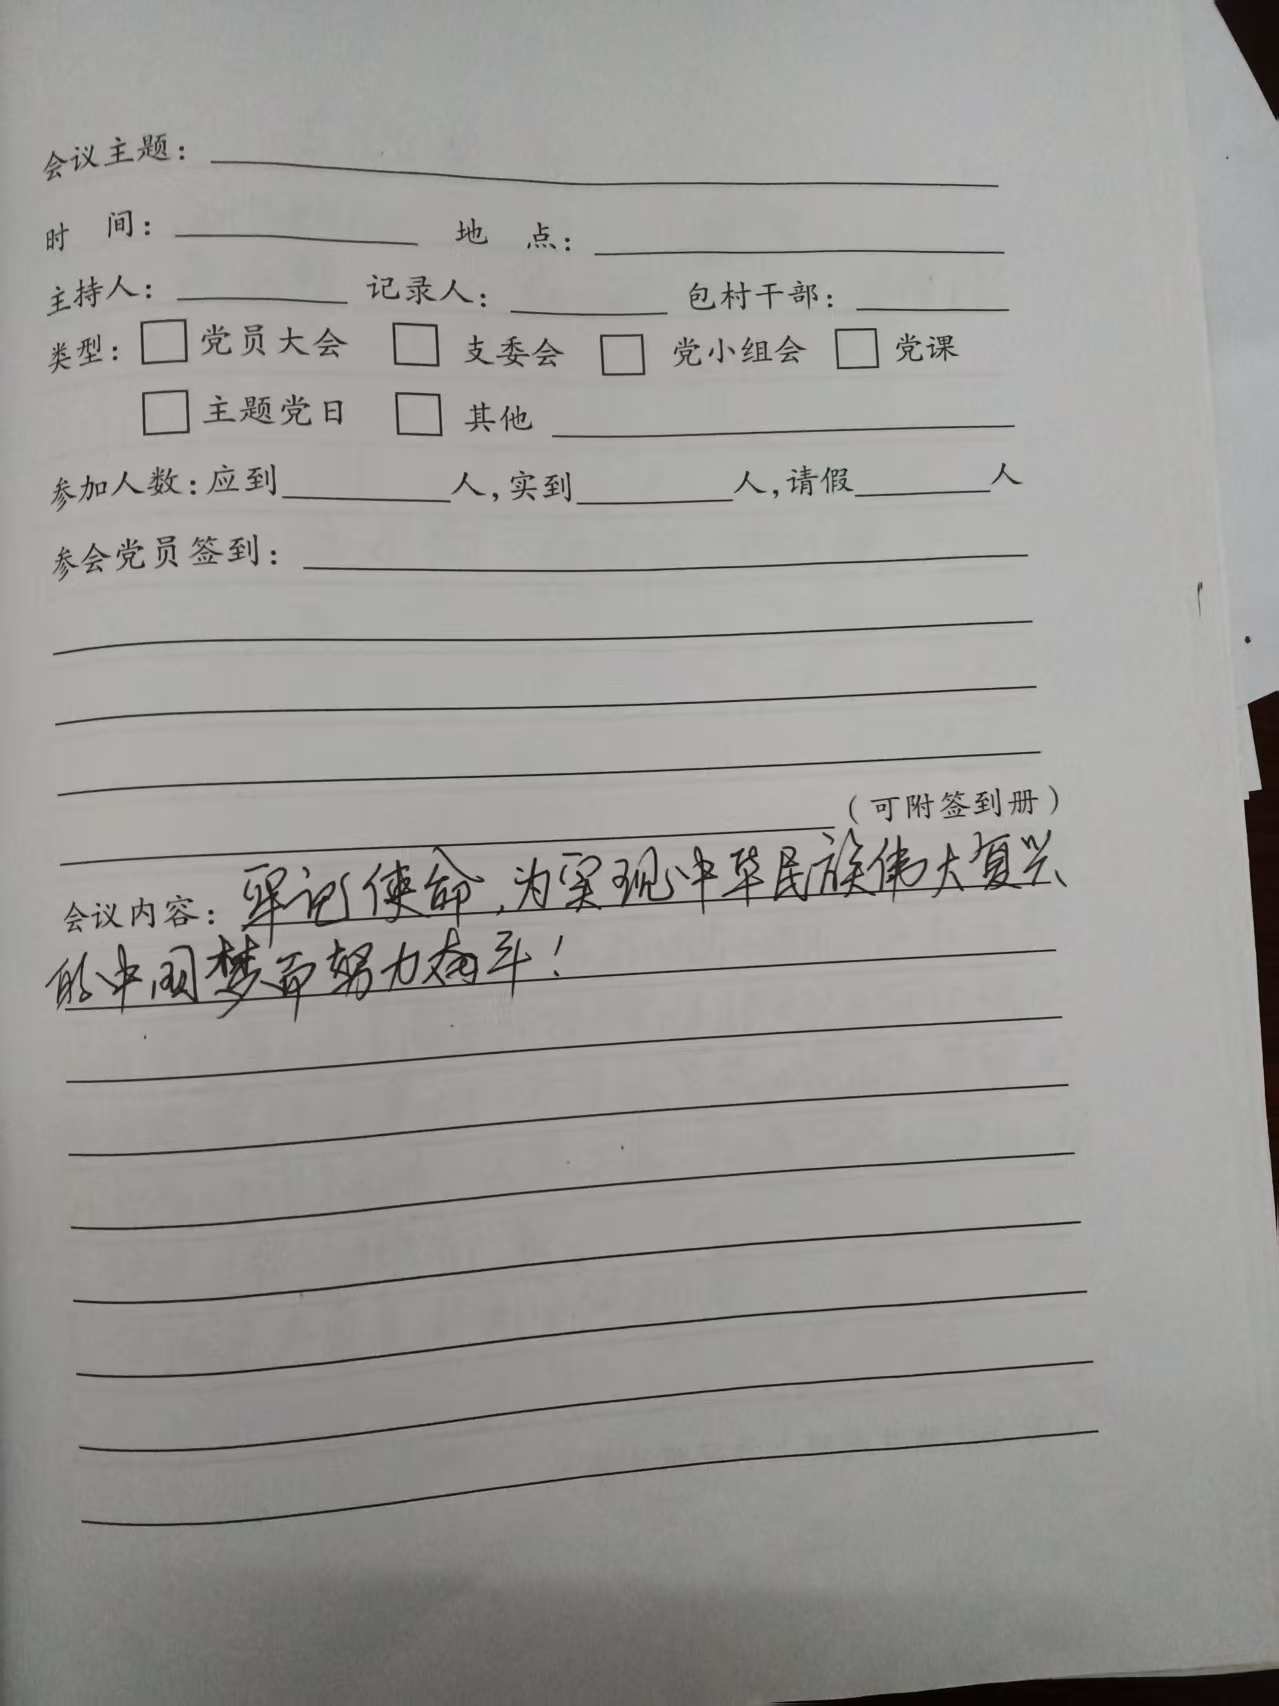 会议主题：
时 间： 地 点：
主持人： 记录人： 包村干部：
类型：□党员大会 □支委会 □党小组会 □党课
□主题党日 □其他
参加人数：应到 人，实到 人，请假 人
参会党员签到：
（可附签到册）
会议内容：牢记使命，为实现中华民族伟大复兴
的中国梦而努力奋斗！